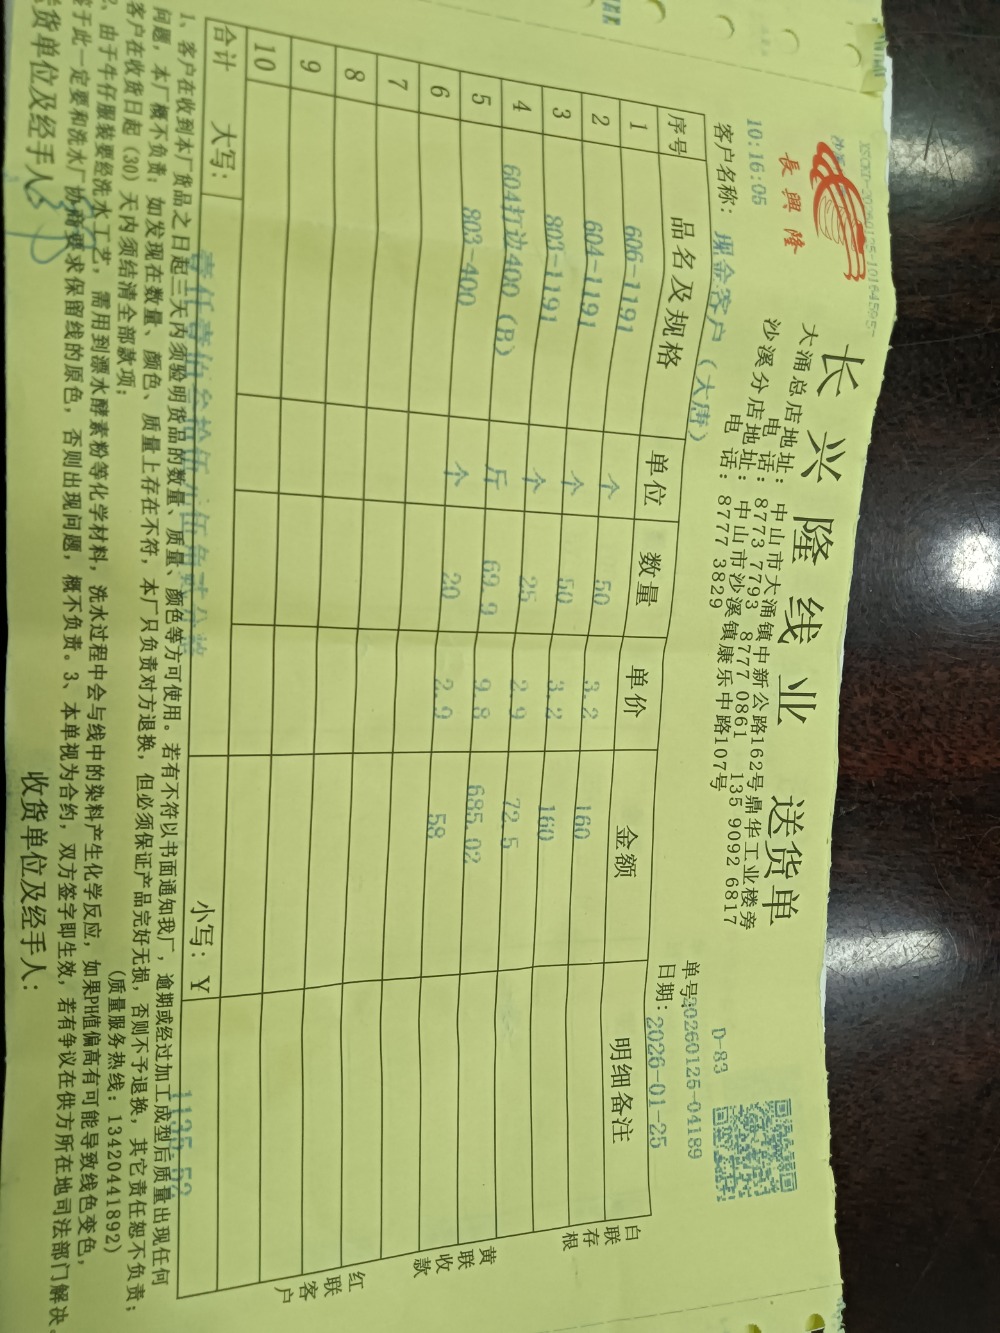 長興隆
长兴隆线业 送货单
大涌总店地址：中山市大涌镇中新公路162号鼎华工业楼旁
电话：8773 7793 8777 0861 135 9092 6817
沙溪分店地址：中山市沙溪镇康乐中路107号
电话：8777 3829
D-83
10:16:05
单号20260125-04189
客户名称：现金客户（大唐）
日期：2026-01-25
序号 品名及规格 单位 数量 单价 金额 明细备注
1 606-1191 个 50 3.2 160
2 604-1191 个 50 3.2 160
3 803-1191 个 25 2.9 72.5
4 604打边400（B） 斤 69.9 9.8 685.02
5 803-400 个 20 2.9 58
6
7
8
9
10
合计 大写：壹仟壹佰叁拾伍元伍角贰分整 小写：¥ 1135.52
白联存根
黄联收款
红联客户
1、客户在收到本厂货品之日起三天内须验明货品的数量、质量、颜色等方可使用。若有不符以书面通知我厂，逾期或经过加工成型后质量出现任何
问题，本厂概不负责；如发现在数量、颜色、质量上存在不符，本厂只负责对方退换，但必须保证产品完好无损，否则不予退换，其它责任恕不负责；
客户在收货日起（30）天内须结清全部款项；
（质量服务热线：13420441892）
2、由于牛仔服装要经洗水工艺，需用到漂水酵素粉等化学材料，洗水过程中会与线中的染料产生化学反应，如果PH值偏高有可能导致线色变色，
鉴于此一定要和洗水厂协商要求保留线的原色，否则出现问题，概不负责。3、本单视为合约，双方签字即生效，若有争议在供方所在地司法部门解决。
货单位及经手人：
收货单位及经手人：